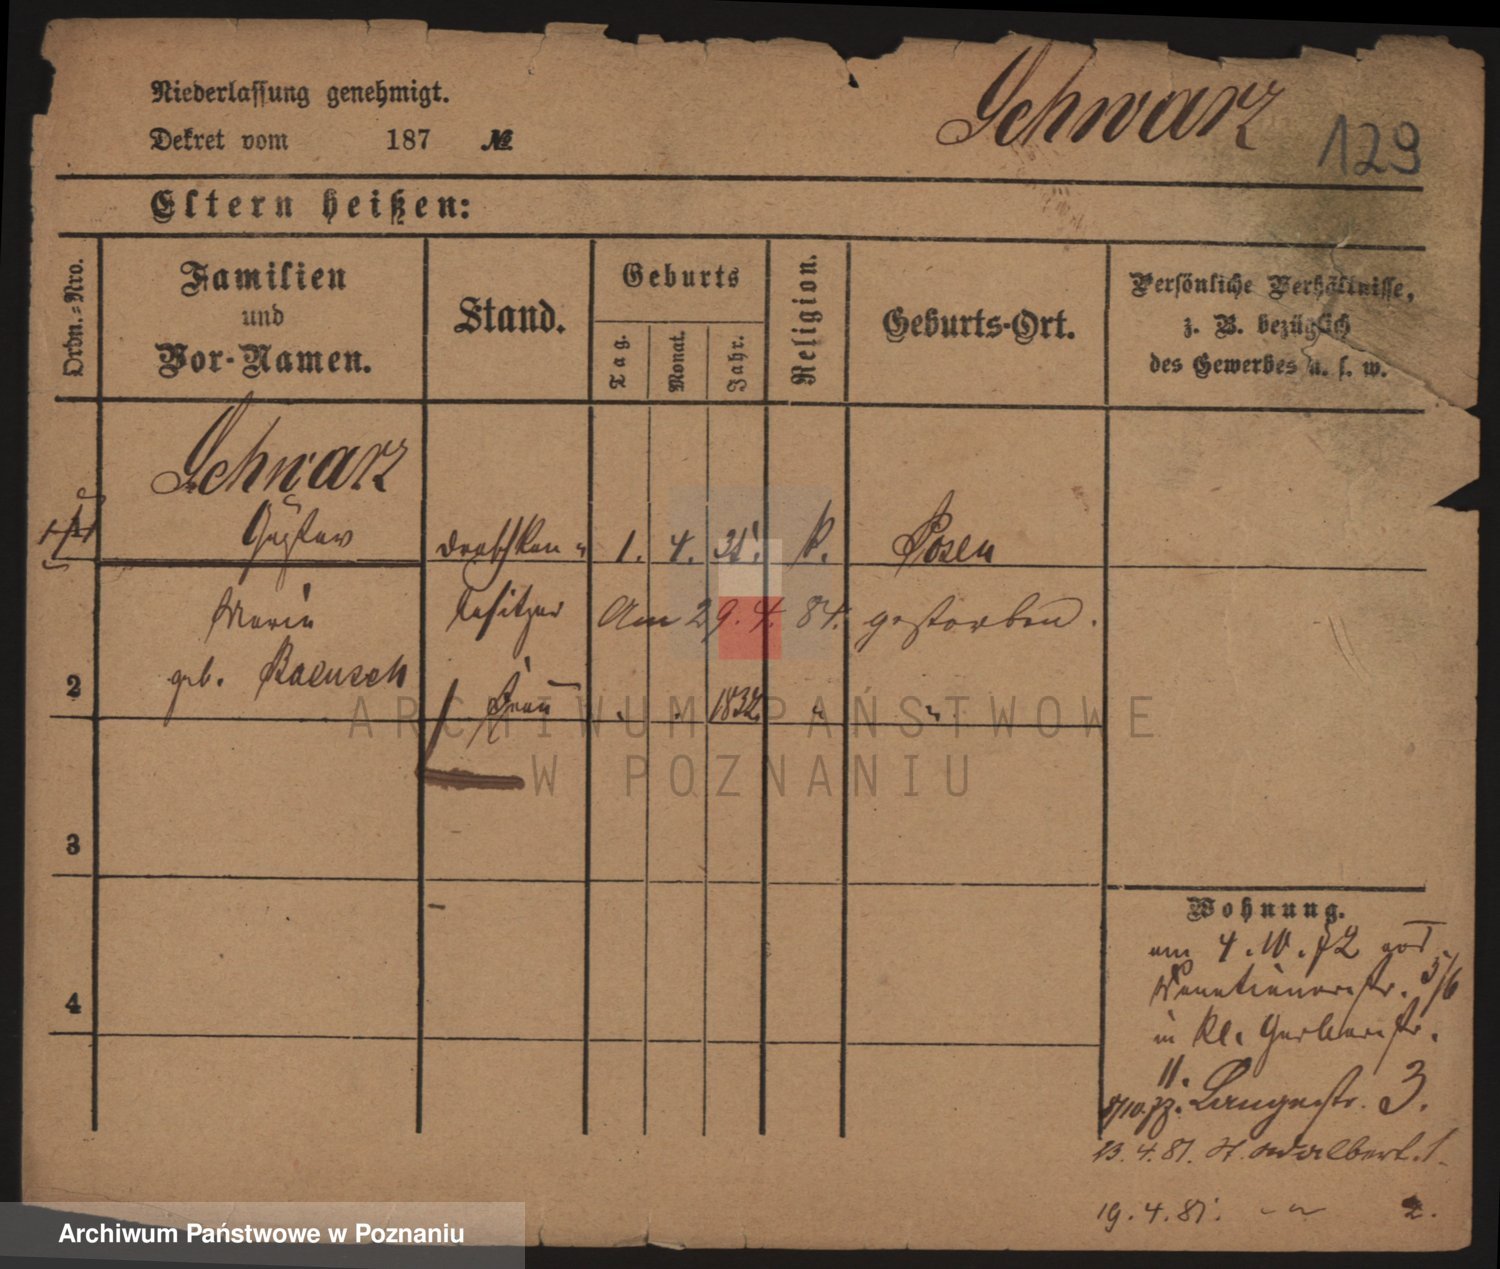 Niederlassung genehmigt.
Dekret vom 187 №
Schwarz
129
Eltern heißen:
Ordn.-Nro.
Familien
und
Vor-Namen.
Stand.
Geburts
Tag.
Monat.
Jahr.
Religion.
Geburts-Ort.
Persönliche Verhältnisse,
z. B. bezüglich
des Gewerbes u. s. w.
Schwarz
1 Gustav Droschken- 1. 4. 31. k. Posen
Marie besitzer Am 29. 4. 84. gestorben.
2 geb. Frau 1832
3
4
Wohnung.
am 4. 10. 72 von
Venetianerstr. 5/6
in Kl. Gerberstr.
11.
Langestr. 3.
13. 4. 81. St. Adalbert. 1.
19. 4. 81. 2.
ARCHIWUM PAŃSTWOWE
W POZNANIU
Archiwum Państwowe w Poznaniu